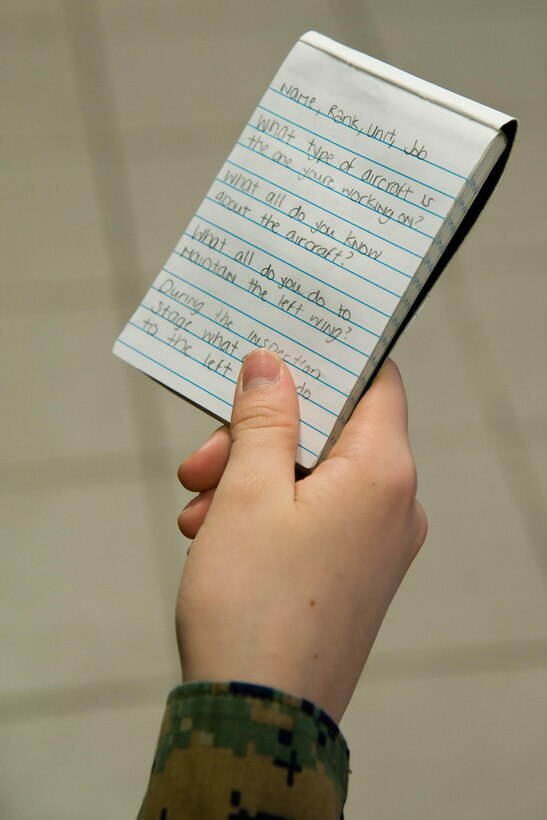 Name, Rank, Unit, Job
What type of aircraft is
the one youre working on?
What all do you know
about the aircraft?
What all do you do to
Maintain the left wing?
During the inspection
Stage what do
to the left